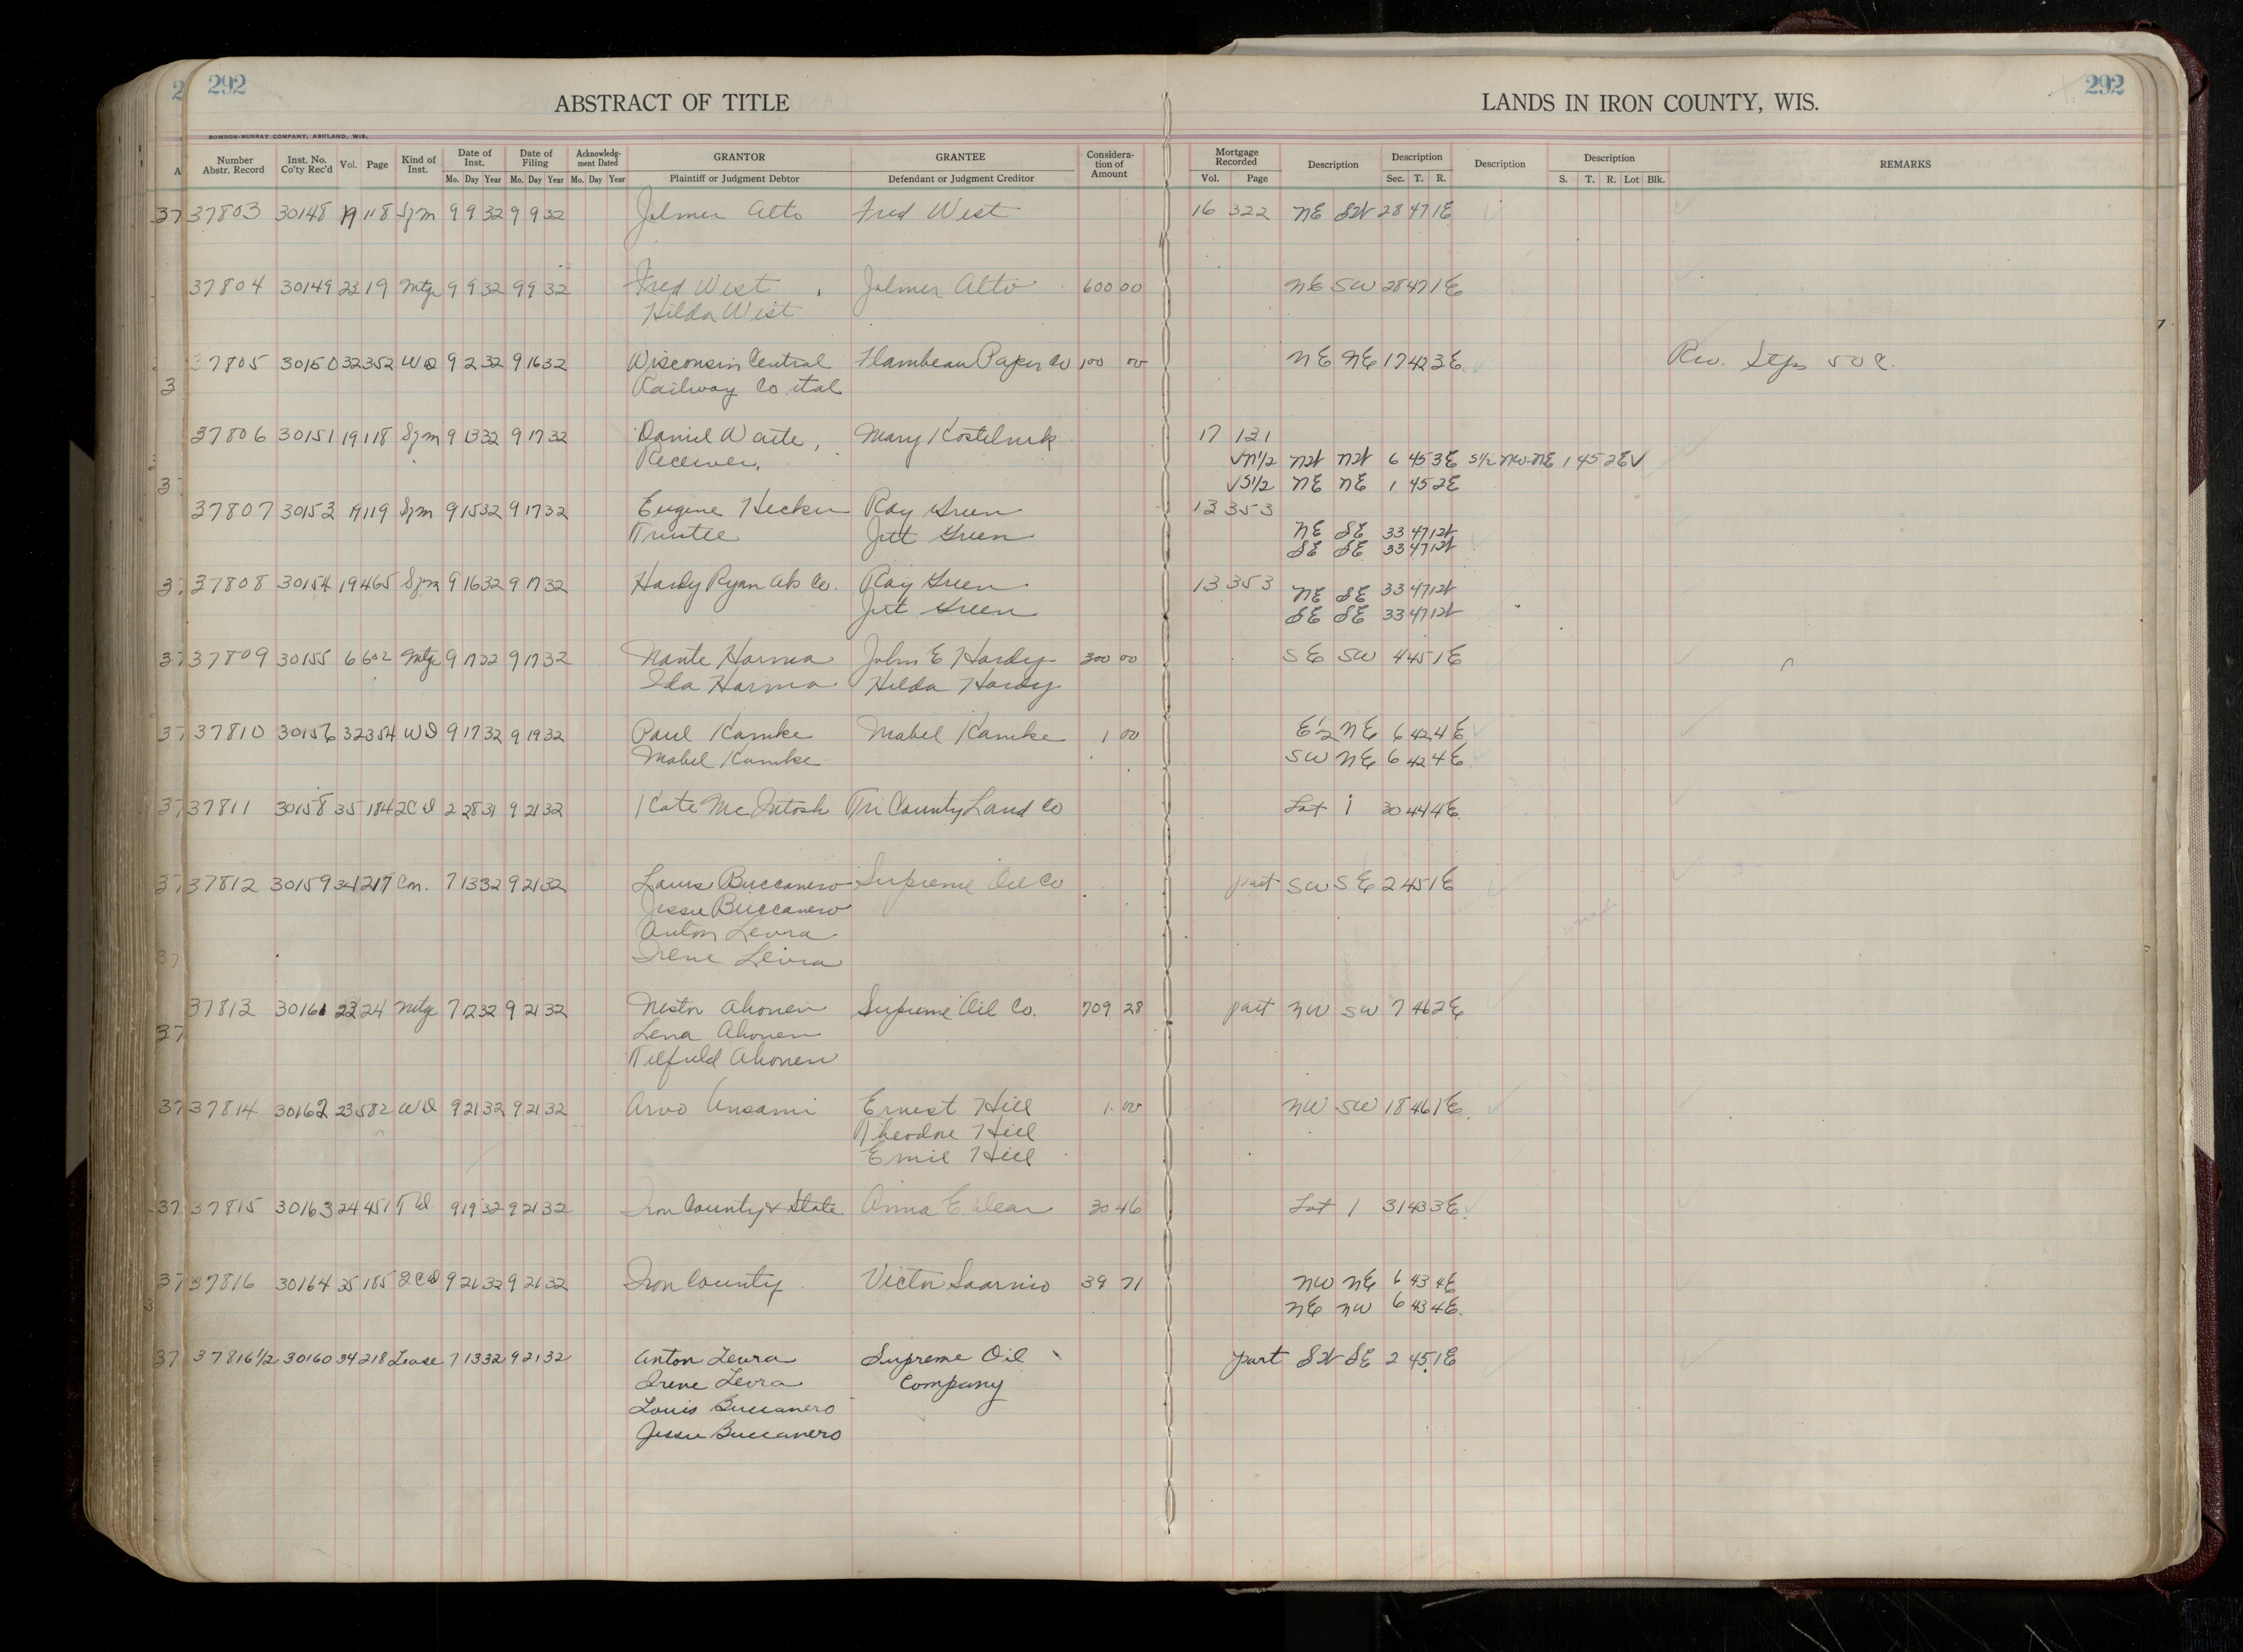 292
ABSTRACT OF TITLE
LANDS IN IRON COUNTY, WIS.
292
BOWRON-MURRAY COMPANY, ASHLAND, WIS.
Number Abstr. Record Inst. No. Co'ty Rec'd Vol. Page Kind of Inst. Date of Inst. Date of Filing Acknowledg-ment Dated GRANTOR GRANTEE Considera-tion of Amount Mortgage Recorded Description Description Description Description REMARKS
Mo. Day Year Mo. Day Year Mo. Day Year Plaintiff or Judgment Debtor Defendant or Judgment Creditor Vol. Page Sec. T. R. S. T. R. Lot Blk.
37803 30148 19 118 Sgm 9 9 32 9 9 32 Jolmer Alto Fred West 16 322 NE SW 28 47 1E
37804 30149 23 19 Mtge 9 9 32 9 9 32 Fred West Jolmer Alto 600 00 NE SW 28 47 1E
Hilda West
37805 30150 32 352 WD 9 2 32 9 16 32 Wisconsin Central Flambeau Paper Co 100 00 NE NE 17 42 3E Rev. Stps 50 c.
Railway Co etal
37806 30151 19 118 Sgm 9 13 32 9 17 32 Daniel Waite, Mary Kostelnik 17 121
Receiver, √N1/2 NW NW 6 45 3E S1/2 NW-NE 1 45 2E √
√S1/2 NE NE 1 45 2E
37807 30153 19 119 Sgm 9 15 32 9 17 32 Eugene Hecker Ray Green 13 353
Trustee Jett Green NE SE 33 47 1W
SE SE 33 47 1W
37808 30154 19 465 Sgm 9 16 32 9 17 32 Hardy Ryan Ab Co. Ray Green 13 353 NE SE 33 47 1W
Jett Green SE SE 33 47 1W
37809 30155 6 602 Mtge 9 17 32 9 17 32 Nante Harma John E Hardy 300 00 SE SW 4 45 1E
Ida Harma Hilda Hardy
37810 30156 32 354 WD 9 17 32 9 19 32 Paul Kamke Mabel Kamke 1 00 E1/2 NE 6 42 4E
Mabel Kamke SW NE 6 42 4E
37811 30158 35 184 2CD 2 28 31 9 21 32 Kate McIntosh Tri County Land Co Lot 1 30 44 4E
37812 30159 34 217 Con. 7 13 32 9 21 32 Louis Buccanero Supreme Oil Co part SW SE 2 45 1E
Jessie Buccanero
Anton Levra
Irene Levra
37813 30161 23 24 Mtge 7 12 32 9 21 32 Nestor Ahonen Supreme Oil Co. 709 28 part NW SW 7 46 2E
Lena Ahonen
Ahonen
37814 30162 23 582 WD 9 21 32 9 21 32 Arvo Ansami Ernest Hill 1 00 NW SW 18 46 1E
Theodore Hill
Emil Hill
37815 30163 24 451 TD 9 19 32 9 21 32 Iron County & State Anna E. Dear 30 46 Lot 1 31 43 3E
37816 30164 35 185 2CD 9 21 32 9 21 32 Iron County Victor Saarnio 39 71 NW NE 6 43 4E
NE NW 6 43 4E
37816 1/2 30160 34 218 Lease 7 13 32 9 21 32 Anton Levra Supreme Oil part SW SE 2 45 1E
Irene Levra Company
Louis Buccanero
Jessie Buccanero